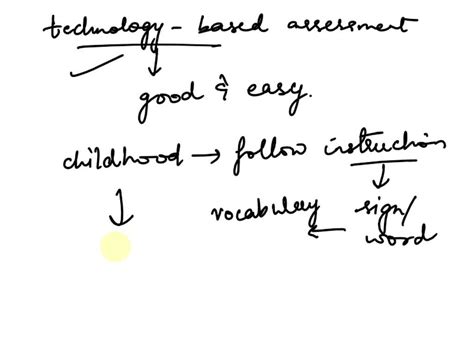 technology - based assessment
good & easy.
childhood → follow instruction
vocabulary ← sign/
word